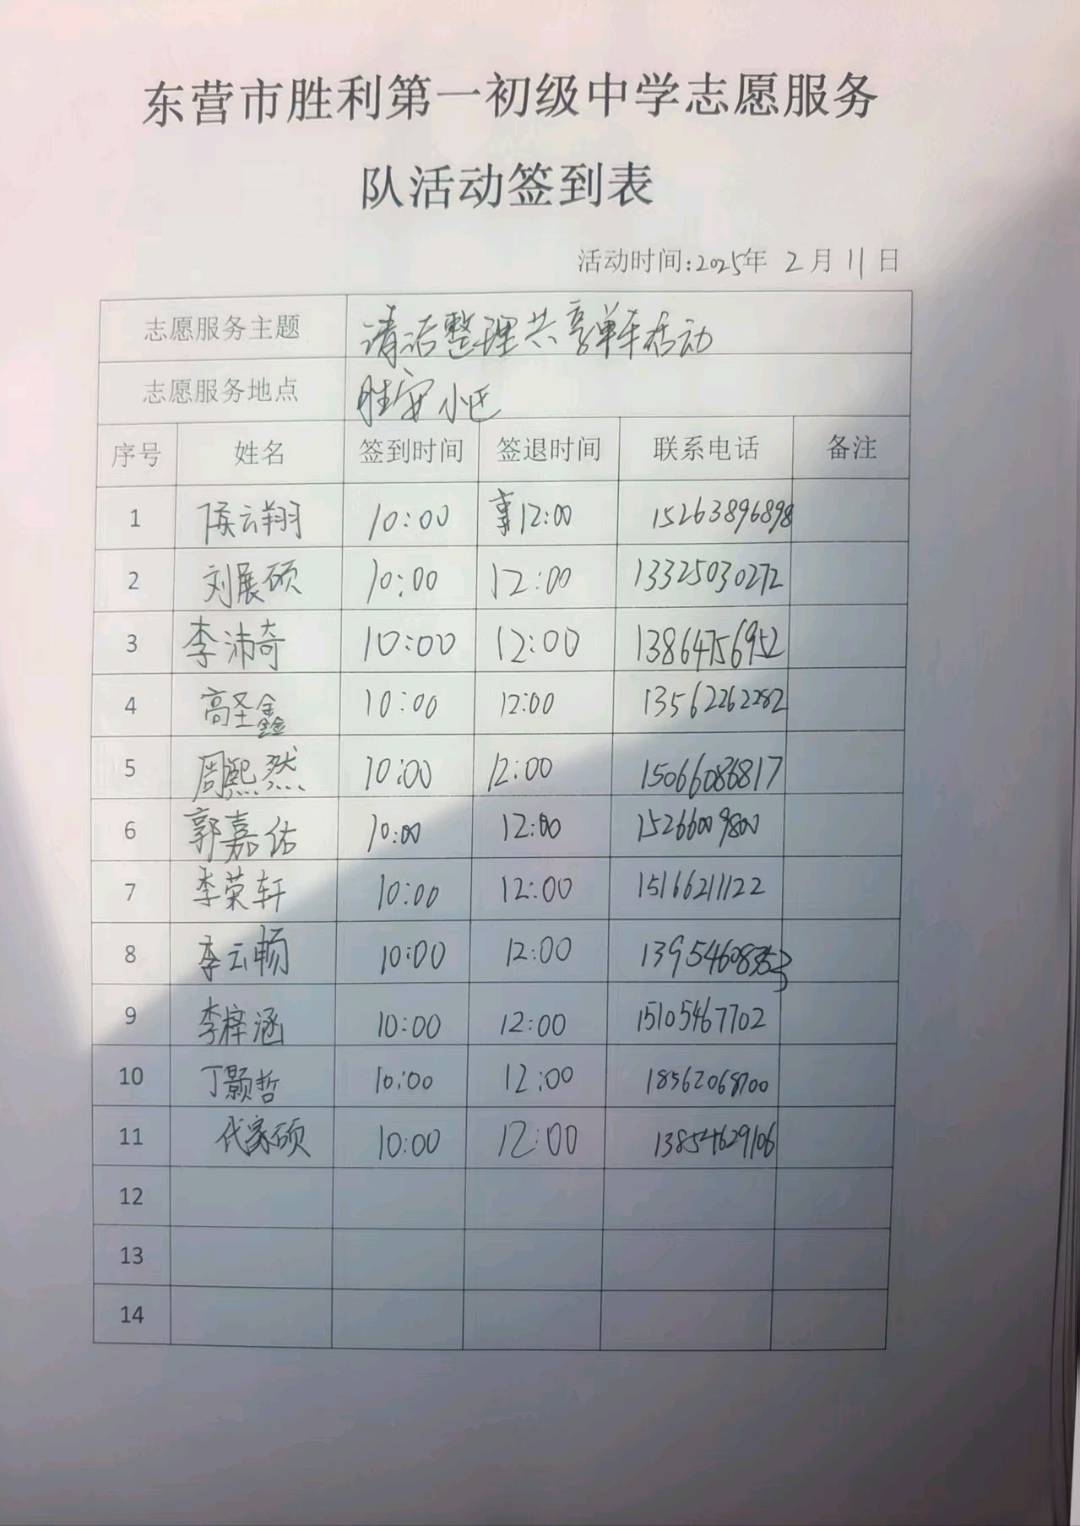 东营市胜利第一初级中学志愿服务
队活动签到表
活动时间:2025年 2月11日
志愿服务主题 清洁整理共享单车活动
志愿服务地点 胜安小区
序号 姓名 签到时间 签退时间 联系电话 备注
1 侯云翔 10:00 12:00 15263896898
2 刘展硕 10:00 12:00 13325030272
3 李沛奇 10:00 12:00 13864756952
4 高圣鑫 10:00 12:00 13562262282
5 周熙然 10:00 12:00 15066086817
6 郭嘉佑 10:00 12:00 15266009800
7 李荣轩 10:00 12:00 15166211122
8 李云畅 10:00 12:00
9 李梓涵 10:00 12:00 15105467702
10 丁颢哲 10:00 12:00
11 代家硕 10:00 12:00 13854629106
12
13
14